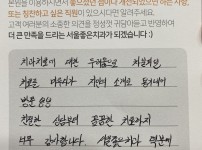 본원을 이용하시면서 좋았던 점이나 개선되었으면 하는 사항,
또는 칭찬하고 싶은 직원이 있으시다면 알려주세요.
고객 여러분의 소중한 의견을 정성껏 귀담아듣고 반영하여
더 큰 만족을 드리는 서울좋은치과가 되겠습니다 :)
치과치료에 대한 두려움으로 치료를
미루다가 지인의 소개로 용기내어
방문
친절한 상담분과 꼼꼼한 치료까지
너무 감사합니다. 서울좋은치과 덕분에